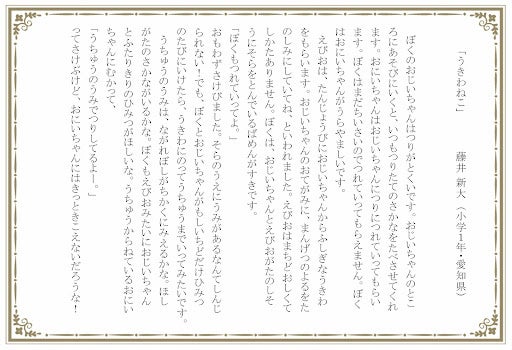 「うきわねこ」　　　藤井 新大（小学1年・愛知県）
　ぼくのおじいちゃんはつりがとくいです。おじいちゃんのとこ
ろにあそびにいくと、いつもつりたてのさかなをたべさせてくれ
ます。おにいちゃんはおじいちゃんにつりにつれていってもらい
ます。ぼくはまだちいさいのでつれていってもらえません。ぼく
はおにいちゃんがうらやましいです。
　えびおは、たんじょうびにおじいちゃんからふしぎなうきわ
をもらいます。おじいちゃんのおてがみに、まんげつのよるをた
のしみにしていてね、といわれました。えびおはまちどおしくて
しかたありません。ぼくは、おじいちゃんとえびおがたのしそ
うにそらをとんでいるばめんがすきです。
「ぼくもつれていってよ。」
おもわずさけびました。そらのうえにうみがあるなんてしんじ
られない！でも、ぼくとおじいちゃんがもしいちどだけひみつ
のたびにいけたら、うきわにのってうちゅうまでいってみたいです。
　うちゅうのうみは、ながれぼしがちかくにみえるかな。ほし
がたのさかながいるかな。ぼくもえびおみたいにおじいちゃん
とふたりきりのひみつがほしいな。うちゅうからねているおにい
ちゃんにむかって、
「うちゅうのうみでつりしてるよー。」
ってさけぶけど、おにいちゃんにはきっときこえないだろうな！